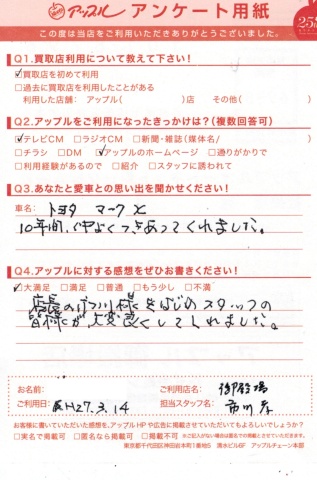 アップル アンケート用紙
この度は当店をご利用いただきありがとうございました。
Q1.買取店利用について教えて下さい!
☑買取店を初めて利用
□過去に買取店を利用したことがある
利用した店舗： アップル( )店 その他( )
Q2.アップルをご利用になったきっかけは?(複数回答可)
☑テレビCM □ラジオCM □新聞・雑誌(媒体名/ )
□チラシ □DM ☑アップルのホームページ □通りがかりで
□利用経験があるので □紹介 □スタッフに誘われて
Q3.あなたと愛車との思い出を聞かせください!
車名： トヨタ マークX
10年間、仲よくつきあってくれました。
Q4.アップルに対する感想をぜひお書きください!
☑大満足 □満足 □普通 □もう少し □不満
店長の市川様をはじめスタッフの
皆様が大変良くしてくれました。
お名前： ご利用店名： 御殿場
ご利用日： H27.3.14 担当スタッフ名： 市川
お客様に書いていただいた感想を、アップルHPや広告に掲載させていただいてもよろしいでしょうか?
□実名で掲載可 □匿名なら掲載可 □掲載不可 ※ご記入がない場合は匿名での掲載とさせていただきます。
東京都千代田区神田岩本町1番地5 清水ビル6F アップルチェーン本部